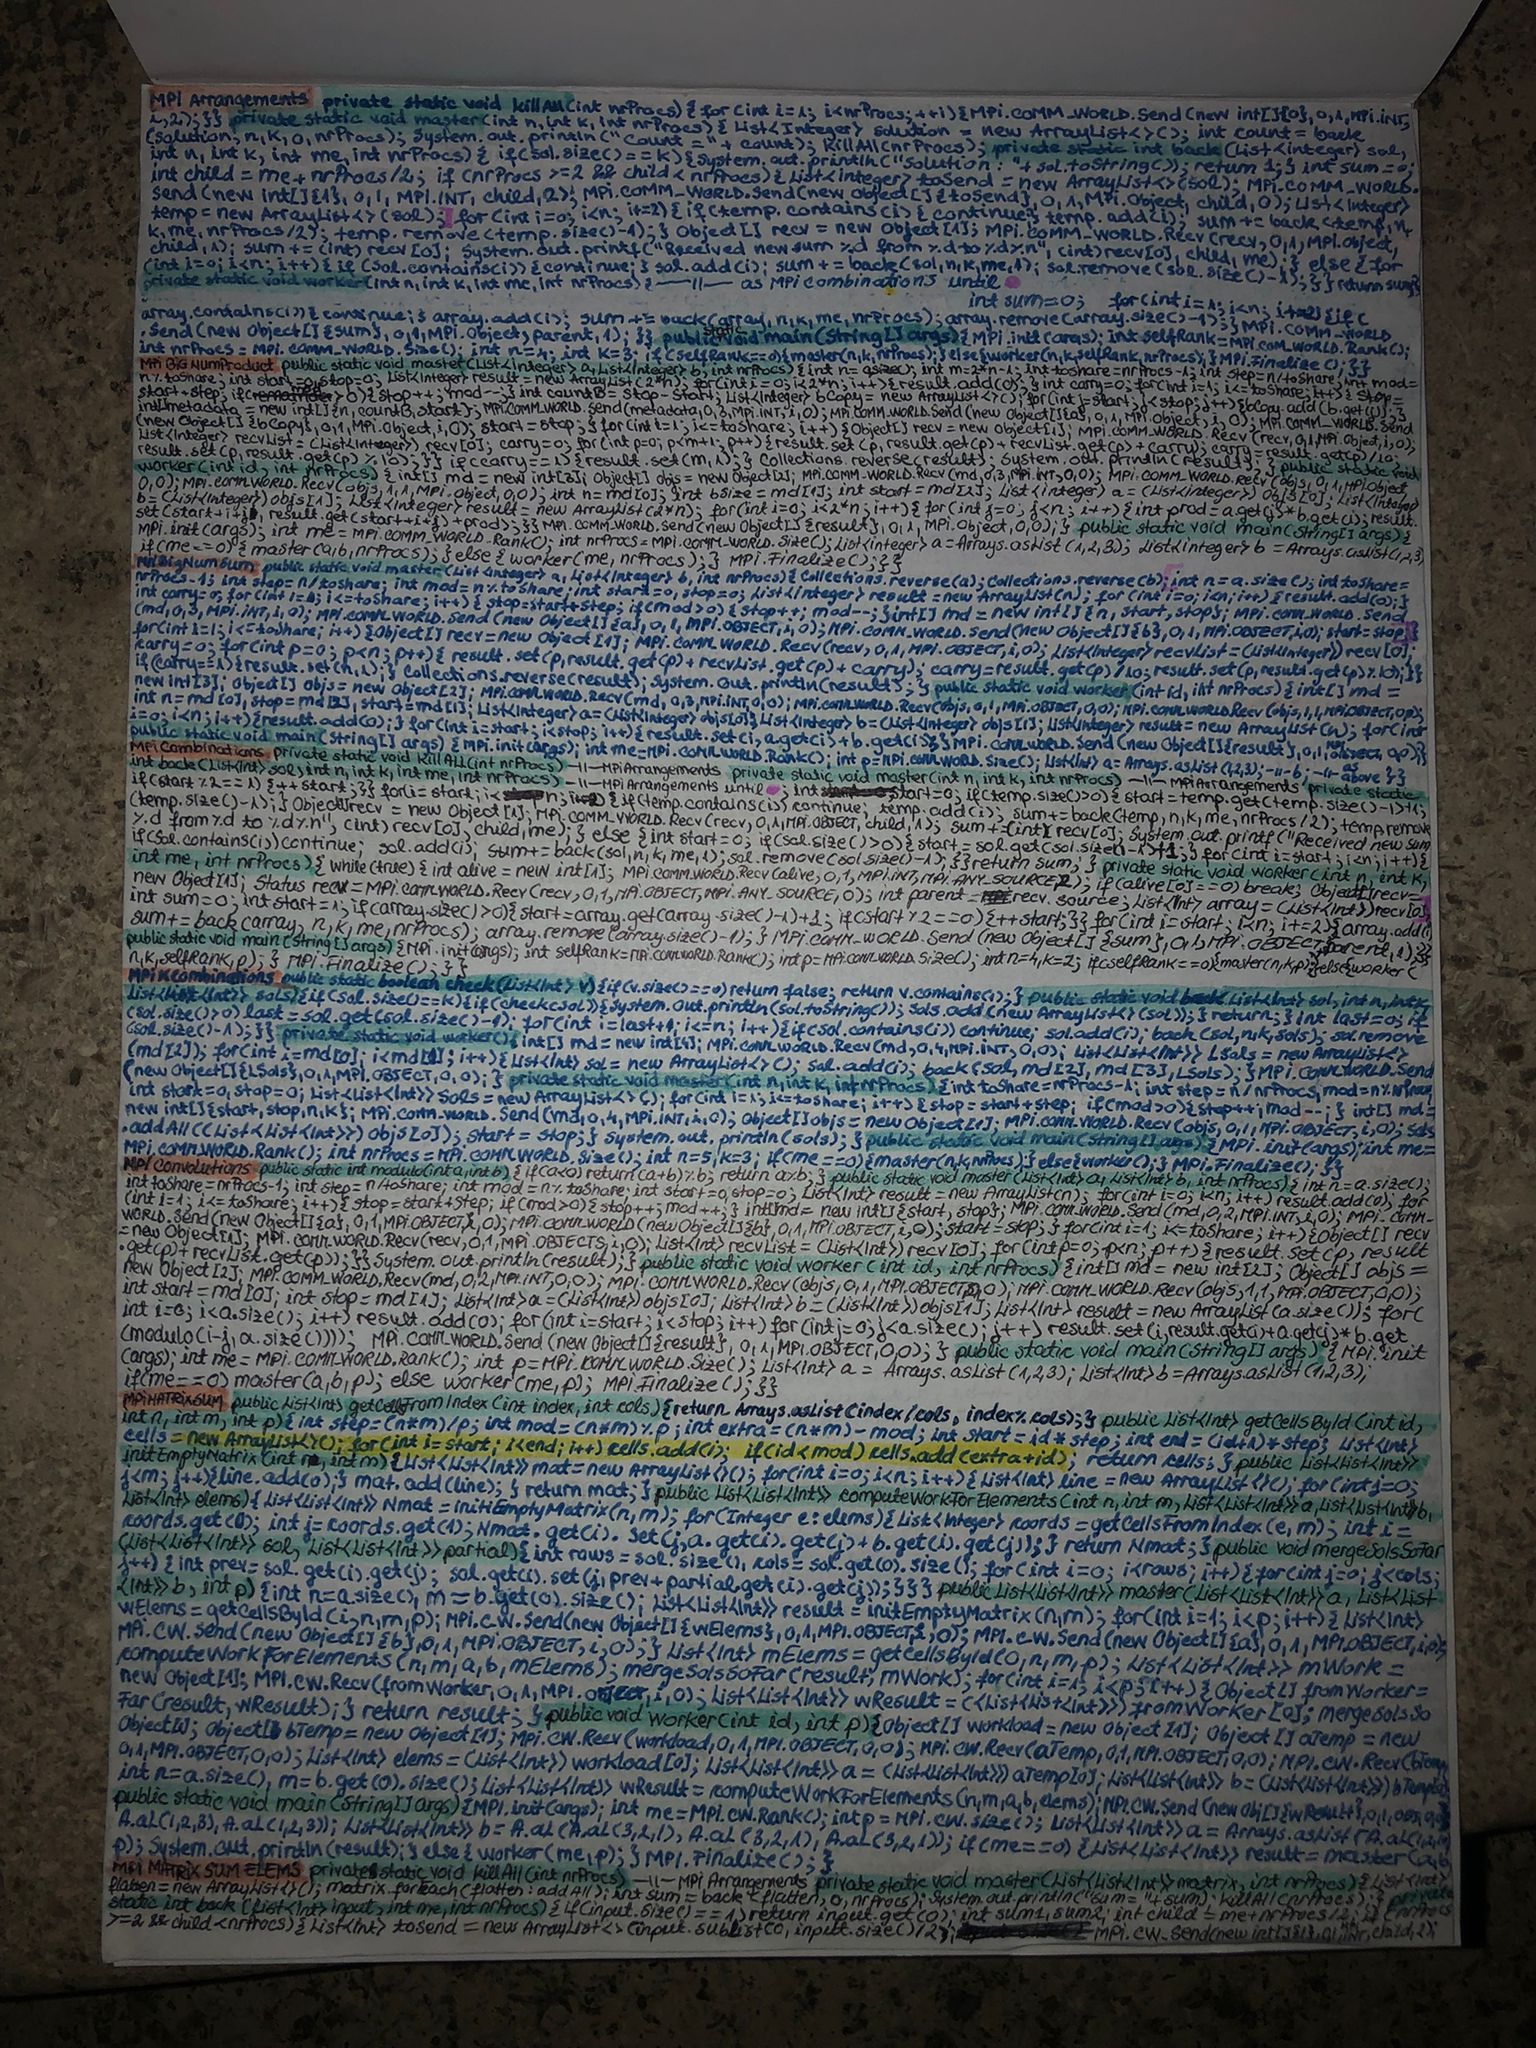 MPI Arrangements private static void killAll(int nrProcs) { for (int i=1; i<nrProcs; ++i){MPI.COMM_WORLD.Send(new int[]{0},0,1,MPI.INT,
i,2);}} private static void master(int n, int k, int nrProcs) { List<Integer> solution = new ArrayList<>(); int count = back
(solution, n, k, 0, nrProcs); System.out.println("Count = "+ count); KillAll(nrProcs); private static int back (List<integer> sol,
int n, int k, int me, int nrProcs) { if(sol.size()==k){System.out.println("solution : "+ sol.toString()); return 1; } int sum = 0;
int child = me + nrProcs/2; if (nrProcs >=2 && child < nrProcs) { List<integer> toSend = new ArrayList<>(sol); MPI.COMM_WORLD.
send (new int[]{1}, 0, 1, MPI.INT, child, 2); MPI.COMM_WORLD.Send(new Object[]{toSend}, 0, 1, MPI.Object, child, 0); List<Integer>
temp = new ArrayList<>(sol); for (int i=0; i<n; i+=2) { if (temp.contains(i) { continue; } temp.add(i); sum += back (temp, n,
k, me, nrProcs/2); temp.remove(temp.size()-1); } Object [] recv = new Object[1]; MPI.COMM_WORLD.Recv (recv, 0,1, MPI.Object,
child, 1); sum += (int) recv [0]; System.out.printf("Received new sum %d from %d to %d%n", (int) recv[0], child, me); } else { for
(int i=0; i<n; i++) { if (sol.contains(i)) {continue; } sol.add(i); sum += back(sol, n, k, me, 1); sol.remove (sol.size()-1); } } return sum;}
private static void worker (int n, int k, int me, int nrProcs) { —||— as MPI combinations until
int sum = 0; for(int i=1; i<n; i+=2) {if (
array.contains(i)) { continue; } array.add(i); sum += back(array, n, k, me, nrProcs); array.remove(array.size()-1); } MPI.COMM_WORLD
.Send (new Object[]{sum}, 0,1, MPI.Object, parent, 1); }} public static void main(String[] args) {MPI.init (args); int selfRank = MPI.COM_WORLD.Rank();
int nrProcs = MPI.COMM_WORLD.Size(); int n=4; int k=3; if (selfRank==0){master(n,k,nrProcs);} else {worker(n,k,selfRank, nrProcs); } MPI.Finalize(); }}
MPI BIG NumProduct public static void master(List<integer> a, List<integer> b, int nrProcs) { int n= a.size(); int m=2*n-1; int toshare=nrProcs-1; int step=n/toShare; int mod=
n%toShare; int start=0, stop=0; List<integer> result = new ArrayList(2*n); for(int i=0; i<2*n; i++) {result.add(0); } int carry=0; for(int i=1; i<=toShare; i++) { stop =
start+step; if(mod>0) { stop++; mod--; } int countB = stop-start; List<integer> bCopy = new ArrayList<>(); for(int j=start; j<stop; j++) {bCopy.add (b.get(j)); }
int[] metadata = new int[]{n, countB, start}; MPI.COMM_WORLD.send (metadata, 0, 3, MPI.INT, i, 0); MPI.COMM_WORLD.Send(new Object[]{a}, 0, 1, MPI.Object, i, 0); MPI.COMM_WORLD.Send
(new Object[] {bCopy}, 0,1, MPI.Object, i, 0); start = stop; } for (int i=1; i<=toShare; i++) {Object [] recv = new Object [1]; MPI.COMM_WORLD.Recv (recv,0,1,MPI.Object,i,0);
List<integer> recvList = (List<integer>) recv[0]; carry=0; for (int p=0; p<m+1; p++) {result.set (p, result.get(p)+recvList.get(p)+carry); carry=result.get(p)/10;
result.set (p, result.get (p) % 10); }} if (carry==1) {result.set (m,1); } Collections.reverse(result); System.out.println(result); } public static void
worker (int id, int nrProcs) { int[] md = new int[3]; Object[] objs = new Object[2]; MPI.COMM_WORLD.Recv (md, 0,3,MPI.INT,0,0); MPI.COMM_WORLD.Recv (objs, 0,1,MPI.Object,
0,0); MPI.COMM_WORLD.Recv (objs, 1, 1, MPI.Object, 0,0); int n=md[0]; int bSize = md[1]; int start = md[2]; List<integer> a = (List<integer>) Objs[0]; List<integer>
b = (List<Integer>) objs[1]; List<integer> result = new ArrayList(2*n); for(int i=0; i<2*n; i++) { for (int j=0; j<n; i++) { int prod=a.get(j)*b.get(i);result.
set (start+i+j, result.get(start+i+j)+prod);}} MPI.COMM_WORLD.Send(new Object[]{result}, 0,1, MPI.Object, 0,0); } public static void main (String[] args) {
MPI.init (args); int me = MPI.COMM_WORLD.Rank(); int nrProcs = MPI.COMM_WORLD.Size(); List<integer> a=Arrays.asList (1,2,3); List<integer> b = Arrays.asList(1,2,3)
if (me==0) { master (a,b, nrProcs); } else { worker (me, nrProcs); } MPI.Finalize(); } }
MPI BigNumSum public static void master (List<Integer> a, List<Integer> b, int nrProcs) { Collections.reverse(a); Collections.reverse(b); int n= a.size(); int toshare=
nrProcs-1; int step=n/toshare; int mod=n%toshare; int start=0, stop=0; List<Integer> result = new ArrayList(n); for (int i=0; i<n; i++) {result.add(0); }
int carry=0; for(int i=1; i<=toshare; i++) { stop=start+step; if(mod>0) {stop++; mod--;} int[] md = new int[]{n, start, stop}; MPI.COMM_WORLD.Send
(md, 0,3, MPI.INT, i, 0); MPI.COMM_WORLD.Send (new Object[]{a}, 0,1, MPI.OBJECT, i, 0); MPI.COMM_WORLD.Send(new Object[]{b}, 0,1, MPI.OBJECT,i,0); start=stop; }
for(int i=1; i<=toshare; i++) {Object[] recv = new Object [1]; MPI.COMM_WORLD.Recv (recv, 0,1,MPI.OBJECT, i,0); List<Integer> recvList = (List<Integer>) recv[0];
carry=0; for(int p=0; p<n; p++) { result.set (p,result.get(p)+recvList.get(p)+carry); carry=result.get(p)/10; result.set (p,result.get(p)%10);}}
if (carry==1){result.set(n,1); } Collections.reverse(result); System.out.println(result); } public static void worker (int id, int nrProcs) { int[] md =
new int[3]; Object[] objs = new Object[2]; MPI.COMM_WORLD.Recv (md, 0,3, MPI.INT,0,0); MPI.COMM_WORLD.Recv(objs, 0,1, MPI.OBJECT, 0,0); MPI.COMM_WORLD.Recv (objs,1,1,MPI.OBJECT,0,0);
int n=md[0], stop=md[2], start=md[1]; List<Integer> a=(List<Integer> objs[0]; List<Integer> b=(List<Integer>) objs [1]; List<Integer> result = new ArrayList (n); for(int
i=0; i<n; i++) {result.add(0); } for(int i=start; i<stop; i++) {result.set(i, a.get(i)+b.get(i)); } MPI.COMM_WORLD.Send (new Object[]{result}, 0,1, MPI.OBJECT, 0,0);}
public static void main(String[] args) {MPI.init(args); int me=MPI.COMM_WORLD.Rank(); int p=MPI.COMM_WORLD.Size(); List<Int> a=Arrays.asList(1,2,3); -||- b; -||- as above }}
MPI Combinations private static void KillAll(int nrProcs) -||- MPI Arrangements private static void master(int n, int k, int nrProcs) -||- MPI Arrangements private static
int back (List<Int> sol, int n, int k, int me, int nrProcs) -||- MPI Arrangements until ; int start=0; if(temp.size()>0) { start=temp.get(temp.size()-1)+1;
if(start%2==1) {++start;}} for(i=start; i<n; i+=2) { if(temp.contains(i)) continue; temp.add(i); sum+=back(temp, n, k, me, nrProcs/2); temp.remove
(temp.size()-1); } Object[] recv = new Object [1]; MPI.COMM_WORLD.Recv (recv, 0,1,MPI.OBJECT, child, 1); sum +=(int)( recv [0]; System.out.printf ("Received new sum
%d from %d to %d%n", (int) recv[0], child, me); } else { int start=0; if(sol.size()>0) {start=sol.get(sol.size()-1)+1;} for(int i=start; i<n; i++){
if(sol.contains(i)) continue; sol.add(i); sum+=back(sol,n,k,me,1); sol.remove(sol.size()-1); }} return sum; } private static void worker (int n, int k,
int me, int nrProcs) { while (true) {int alive = new int[1]; MPI.COMM_WORLD.Recv (alive, 0,1, MPI.INT, MPI.ANY_SOURCE,2); if (alive[0]==0) break; Object[] recv=
new Object[1]; Status recv = MPI.COMM_WORLD.Recv (recv, 0,1, MPI.OBJECT, MPI.ANY_SOURCE, 0); int parent = recv.source; List<Int> array = (List<Int>)recv[0];
int sum=0; int start=1; if(array.size()>0){start=array.get(array.size()-1)+1; if(start%2==0){++start;}} for(int i=start; i<n; i+=2){array.add(i)
sum+=back (array, n, k, me, nrProcs); array.remove (array.size()-1); } MPI.COMM_WORLD.Send (new Object[] {sum}, 0,1, MPI.OBJECT, parent, 1); }}
public static void main (String[] args) {MPI.init(args); int selfRank=MPI.COMM_WORLD.Rank(); int p=MPI.COMM_WORLD.Size(); int n=4, k=2; if(selfRank==0){master(n,k,p);}else{worker (
n,k,selfRank, p); } MPI.Finalize(); } }
MPI KCombinations public static boolean check (List<Int> v){if(v.size()==0) return false; return v.contains(1); } public static void back(List<Int> sol, int n, int k,
List<List<Int>> sols){if(sol.size()==k){if(check(sol)){System.out.println(sol.toString()); sols.add(new ArrayList<>(sol)); } return; } int last=0; if
(sol.size()>0) last = sol.get(sol.size()-1); for(int i=last+1; i<=n; i++){if(sol.contains(i)) continue; sol.add(i); back(sol,n,k,sols); sol.remove
(sol.size()-1); }} private static void worker() {int[] md = new int[4]; MPI.COMM_WORLD.Recv(md, 0,4, MPI.INT, 0,0); List<List<Int>> Lsols = new ArrayList<>
(md[2]); for(int i=md[0]; i<md[1]; i++){List<Int> sol = new ArrayList<>(); sol.add(i); back(sol, md[2], md[3], Lsols); } MPI.COMM_WORLD.Send
(new Object[]{Lsols}, 0,1, MPI.OBJECT, 0, 0); } private static void master(int n, int k, int nrProcs) {int toshare=nrProcs-1; int step=n/nrProcs, mod=n%nrProcs;
int start=0, stop=0; List<List<Int>> Sols = new ArrayList<>(); for(int i=1; i<=toshare; i++) { stop=start+step; if(mod>0){stop++; mod--; } int[] md =
new int[]{start, stop,n,k}; MPI.COMM_WORLD.Send (md,0,4,MPI.INT,i,0); Object[] objs = new Object[1]; MPI.COMM_WORLD.Recv (objs, 0,1, MPI.OBJECT, i,0); sols
.addAll ((List<List<Int>>) objs[0]); start = stop; } System.out.println(sols); } public static void main(String[] args) {MPI.init(args);int me=
MPI.COMM_WORLD.Rank(); int nrProcs = MPI.COMM_WORLD.Size(); int n=5, k=3; if(me==0){master(n,k,nrProcs);} else{worker();} MPI.Finalize(); }}
MPI Convolutions public static int modulo(int a, int b) { if(a<0) return(a+b)%b; return a%b; } public static void master (List<Int> a, List<Int> b, int nrProcs) {int n=a.size();
int toshare=nrProcs-1; int step=n/toshare; int mod = n%toshare; int start=0,stop=0; List<Int> result = new ArrayList(n); for(int i=0; i<n; i++) result.add(0); for
(int i=1; i<=toShare; i++){ stop=start+step; if(mod>0){stop++; mod++; } int[] md = new int[]{start, stop}; MPI.COMM_WORLD.Send (md,0,2,MPI.INT,i,0); MPI.COMM_
WORLD.Send (new Object[]{a}, 0,1, MPI.OBJECT,i,0); MPI.COMM_WORLD (new Object[]{b}, 0,1, MPI.OBJECT, i,0); start=stop; } for(int i=1; i<=toShare; i++) {Object[] recv
= new Object[1]; MPI.COMM_WORLD.Recv(recv,0,1,MPI.OBJECTS,i,0); List<Int> recvList = (List<Int>) recv[0]; for(int p=0; p<n; p++) {result.Set (p, result
.get(p)+recvList.get(p));}} System.out.println(result); } public static void worker (int id, int nrProcs) {int[] md = new int[2]; Object[] objs =
new Object [2]; MPI.COMM_WORLD.Recv(md,0,2,MPI.INT,0,0); MPI.COMM_WORLD.Recv (objs, 0,1, MPI.OBJECT,0,0); MPI.COMM_WORLD.Recv (objs, 1,1, MPI.OBJECT,0,0);
int start=md[0]; int stop=md[1]; List<Int> a=(List<Int>) objs[0]; List<Int> b=(List<Int>)objs[1]; List<Int> result = new ArrayList (a.size()); for(
int i=0; i<a.size(); i++) result.add(0); for(int i=start; i<stop; i++) for(int j=0; j<a.size(); j++) result.set (i,result.get(i)+a.get(j)*b.get
(modulo(i-j, a.size()))); MPI.COMM_WORLD.Send (new Object[]{result}, 0,1,MPI.OBJECT,0,0); } public static void main(String[] args) {MPI.init
(args); int me=MPI.COMM_WORLD.Rank(); int p=MPI.COMM_WORLD.Size(); List<Int> a = Arrays.asList (1,2,3); List<Int> b=Arrays.asList(1,2,3);
if(me==0) master(a,b,p); else worker(me,p); MPI.Finalize(); }}
MPI MATRIX SUM public List<Int> getCellsFromIndex (int index, int cols) {return Arrays.asList(index/cols, index%cols); } public List<Int> getCellsById (int id,
int n, int m, int p) { int step=(n*m)/p; int mod=(n*m)%p; int extra=(n*m)-mod; int start=id*step; int end=(id+1)*step; List<Int>
cells = new ArrayList<>(); for(int i=start; i<end; i++) cells.add(i); if(id<mod) cells.add(extra+id); return cells; } public List<List<Int>>
initEmptyMatrix (int n, int m) {List<List<Int>> mat=new ArrayList<>(); for(int i=0; i<n; i++) {List<Int> line = new ArrayList<>(); for(int j=0;
j<m; j++){line.add(0); } mat.add(line); } return mat; } public List<List<Int>> computeWorkForElements (int n, int m, List<List<Int>> a, List<List<Int>> b,
List<Int> elems) {List<List<Int>> Nmat = initEmptyMatrix(n,m); for(Integer e:elems) {List<Integer> coords = getCellsFromIndex (e,m); int i =
coords.get(0); int j=coords.get(1); Nmat.get(i).set(j,a.get(i).get(j)+b.get(i).get(j)); } return Nmat; } public void mergeSolsSoFar
(List<List<Int>> sol, List<List<Int>> partial) {int rows = sol.size(), cols = sol.get(0).size(); for(int i=0; i<rows; i++){for(int j=0; j<cols;
j++) {int prev=sol.get(i).get(j); sol.get(i).set(j,prev+partial.get(i).get(j)); }}} public List<List<Int>> master (List<List<Int>> a, List<List
<Int>> b, int p) {int n=a.size(), m=b.get(0).size(); List<List<Int>> result = initEmptyMatrix(n,m); for(int i=1; i<p; i++) { List<Int>
wElems = getCellsById(i,n,m,p); MPI.CW.Send(new Object[]{wElems},0,1,MPI.OBJECT,i,0); MPI.CW.Send(new Object[]{a},0,1,MPI.OBJECT,i,0);
MPI.CW.Send (new Object[]{b},0,1,MPI.OBJECT,i,0); } List<Int> mElems = getCellsById(0,n,m,p); List<List<Int>> mWork =
computeWorkForElements (n,m,a,b,mElems); mergeSolsSoFar (result, mWork); for(int i=1; i<p; i++) { Object[] fromWorker =
new Object[1]; MPI.CW.Recv(fromWorker, 0,1, MPI.OBJECT,i,0); List<List<Int>> wResult = (<List<List<Int>>) fromWorker[0]; mergeSolsSo
Far(result, wResult); } return result; } public void Worker(int id, int p) {Object[] workload=new Object[1]; Object[] aTemp = new
Object[1]; Object[] bTemp=new Object[1]; MPI.CW.Recv(workload,0,1,MPI.OBJECT,0,0); MPI.CW.Recv(aTemp,0,1,MPI.OBJECT,0,0); MPI.CW.Recv(bTemp,
0,1,MPI.OBJECT,0,0); List<Int> elems=(List<Int>) workload[0]; List<List<Int>> a = (List<List<Int>>) aTemp[0]; List<List<Int>> b=(List<List<Int>>) bTemp[0];
int n=a.size(), m=b.get(0).size(); List<List<Int>> wResult = computeWorkForElements(n,m,a,b,elems); MPI.CW.Send (new Obj[]{wResult},0,1,
public static void main(String[] args) {MPI.init(args); int me=MPI.CW.Rank(); int p=MPI.CW.Size(); List<List<Int>> a = Arrays.asList(A.aL(1,2,3)
A.aL(1,2,3), A.aL(1,2,3)); List<List<Int>> b=A.aL(A.aL(3,2,1), A.aL(3,2,1), A.aL(3,2,1)); if(me==0) {List<List<Int>> result=master(a,b,
p); System.out.println(result); } else{worker(me,p); } MPI.Finalize(); }
MPI MATRIX SUM ELEMS private static void killAll (int nrProcs) -||- MPI Arrangements private static void master(List<List<Int>> matrix, int nrProcs) {List<Int>
flatten=new ArrayList<>(); matrix.forEach(flatten::addAll); int sum = back (flatten, 0, nrProcs); System.out.println("sum="+sum); killAll(nrProcs); } private
static int back (List<Int> input, int me, int nrProcs) {if(input.size()==1) return input.get(0); int sum1, sum2, int child = me+nrProcs/2; if(nrProcs
>=2 && child<nrProcs) {List<Int> tosend = new ArrayList<>(input.subList(0, input.size()/2); MPI.CW.Send(new int[]{1},0,1, child,2);